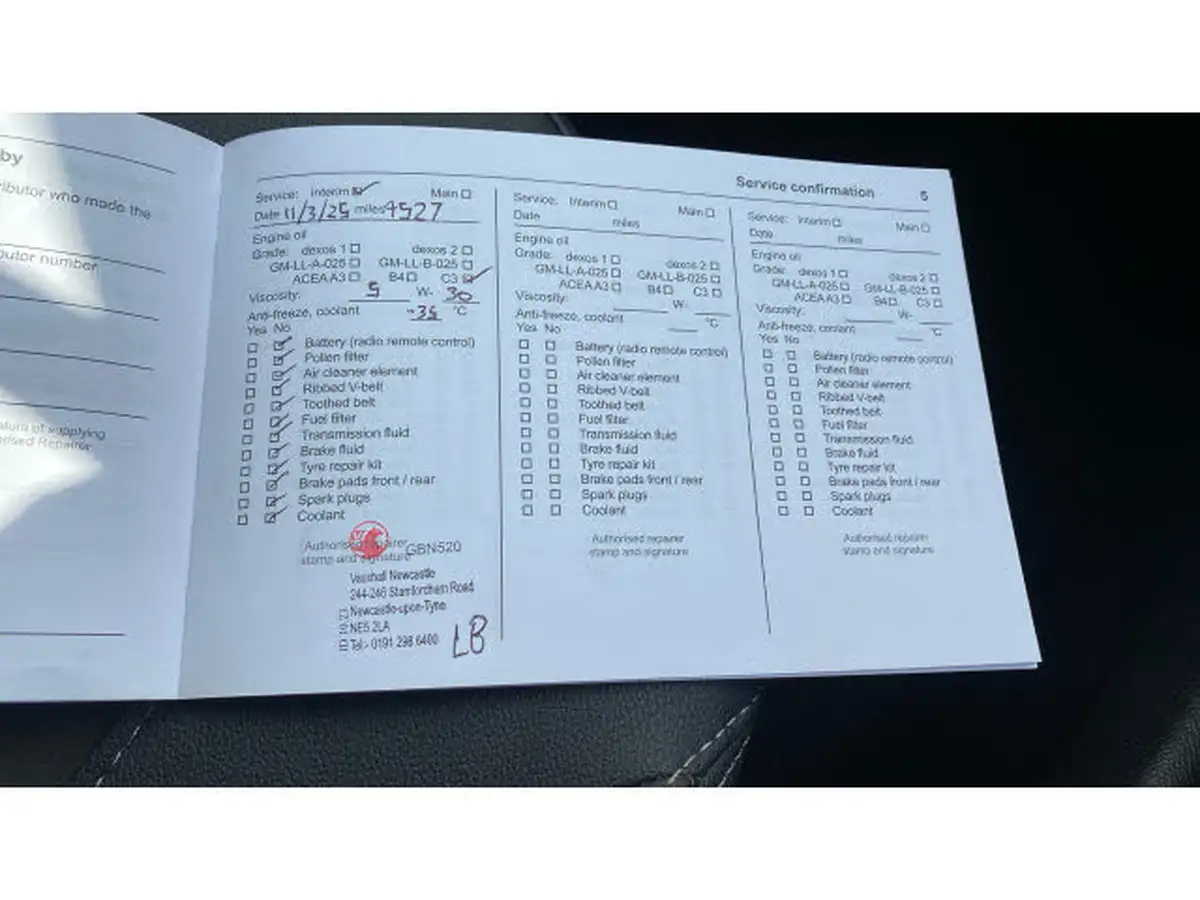 by
ributor who made the
butor number
ature of supplying
orised Repairer
Service confirmation 5
Service: Interim ☑ Main ☐
Date 11/3/25 miles 9527
Engine oil
Grade: dexos 1 ☐ dexos 2 ☐
GM-LL-A-025 ☐ GM-LL-B-025 ☐
ACEA A3 ☐ B4 ☐ C3 ☑
Viscosity: 5 W- 30
Anti-freeze, coolant -35 °C
Yes No
☐ ☑ Battery (radio remote control)
☐ ☑ Pollen filter
☐ ☑ Air cleaner element
☐ ☑ Ribbed V-belt
☐ ☑ Toothed belt
☐ ☑ Fuel filter
☐ ☑ Transmission fluid
☐ ☑ Brake fluid
☐ ☑ Tyre repair kit
☐ ☑ Brake pads front / rear
☐ ☑ Spark plugs
☐ ☑ Coolant
Authorised repairer
stamp and signature
GBN520
Vauxhall Newcastle
244-246 Stamfordham Road
Newcastle-upon-Tyne
NE5 2LA
Tel:- 0191 286 6400
LB
Service: Interim ☐ Main ☐
Date miles
Engine oil
Grade: dexos 1 ☐ dexos 2 ☐
GM-LL-A-025 ☐ GM-LL-B-025 ☐
ACEA A3 ☐ B4 ☐ C3 ☐
Viscosity: W-
Anti-freeze, coolant °C
Yes No
☐ ☐ Battery (radio remote control)
☐ ☐ Pollen filter
☐ ☐ Air cleaner element
☐ ☐ Ribbed V-belt
☐ ☐ Toothed belt
☐ ☐ Fuel filter
☐ ☐ Transmission fluid
☐ ☐ Brake fluid
☐ ☐ Tyre repair kit
☐ ☐ Brake pads front / rear
☐ ☐ Spark plugs
☐ ☐ Coolant
Authorised repairer
stamp and signature
Service: Interim ☐ Main ☐
Date miles
Engine oil
Grade: dexos 1 ☐ dexos 2 ☐
GM-LL-A-025 ☐ GM-LL-B-025 ☐
ACEA A3 ☐ B4 ☐ C3 ☐
Viscosity: W-
Anti-freeze, coolant °C
Yes No
☐ ☐ Battery (radio remote control)
☐ ☐ Pollen filter
☐ ☐ Air cleaner element
☐ ☐ Ribbed V-belt
☐ ☐ Toothed belt
☐ ☐ Fuel filter
☐ ☐ Transmission fluid
☐ ☐ Brake fluid
☐ ☐ Tyre repair kit
☐ ☐ Brake pads front / rear
☐ ☐ Spark plugs
☐ ☐ Coolant
Authorised repairer
stamp and signature